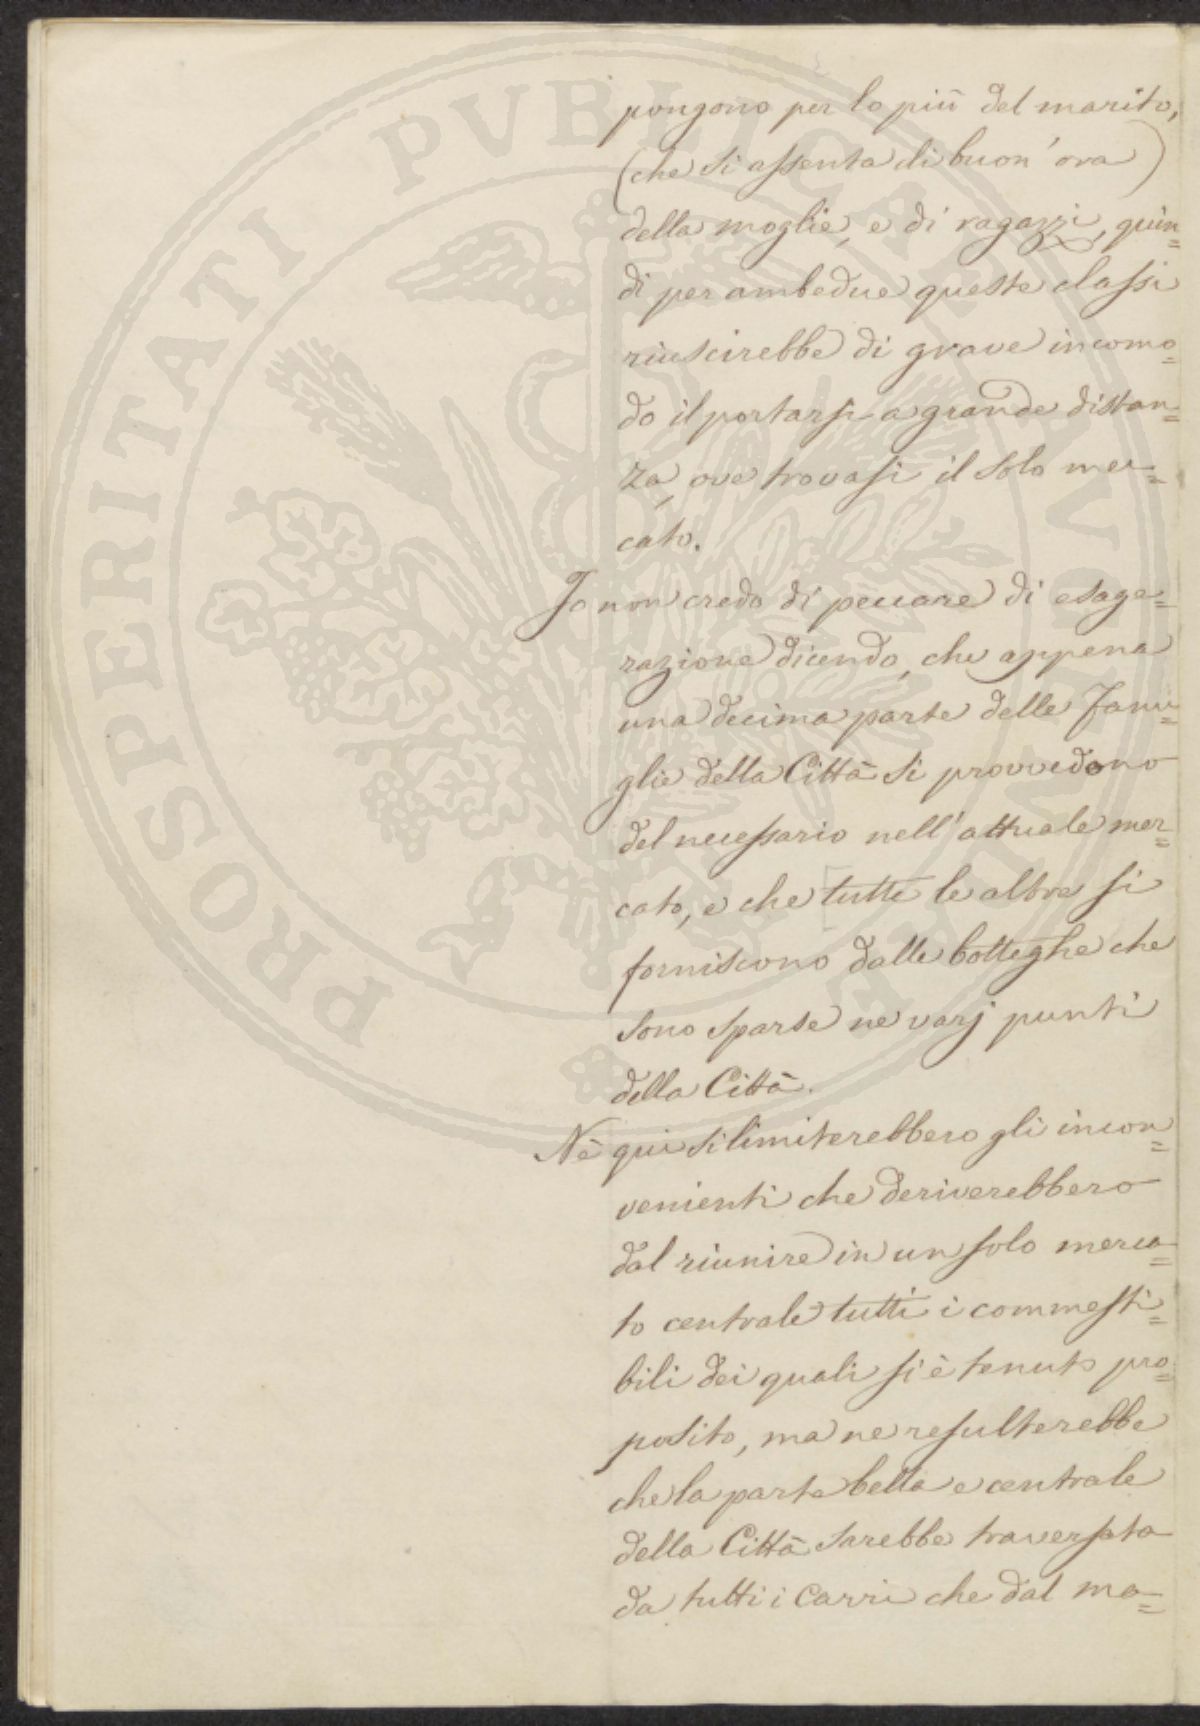 pongono per lo più del marito,
(che si assenta di buon'ora)
della moglie, e di ragazzi, quin=
di per ambedue queste classi
riuscirebbe di grave incomo=
do il portarsi a grande distan=
za, ove trovasi il solo mer=
cato.
Io non credo di peccare di esage=
razione dicendo, che appena
una decima parte delle Fami=
glie della Città si provvedono
del necessario nell'attuale mer=
cato, e che tutte le altre si
forniscono dalle botteghe che
sono sparse ne varj punti
della Città.
Nè qui si limiterebbero gli incon=
venienti che deriverebbero
dal riunire in un solo merca=
to centrale tutti i commesti=
bili dei quali si è tenuto pro=
posito, ma ne resulterebbe
che la parte bella e centrale
della Città sarebbe traversata
da tutti i Carri che dal ma=
PROSPERITATI PVBLICAE